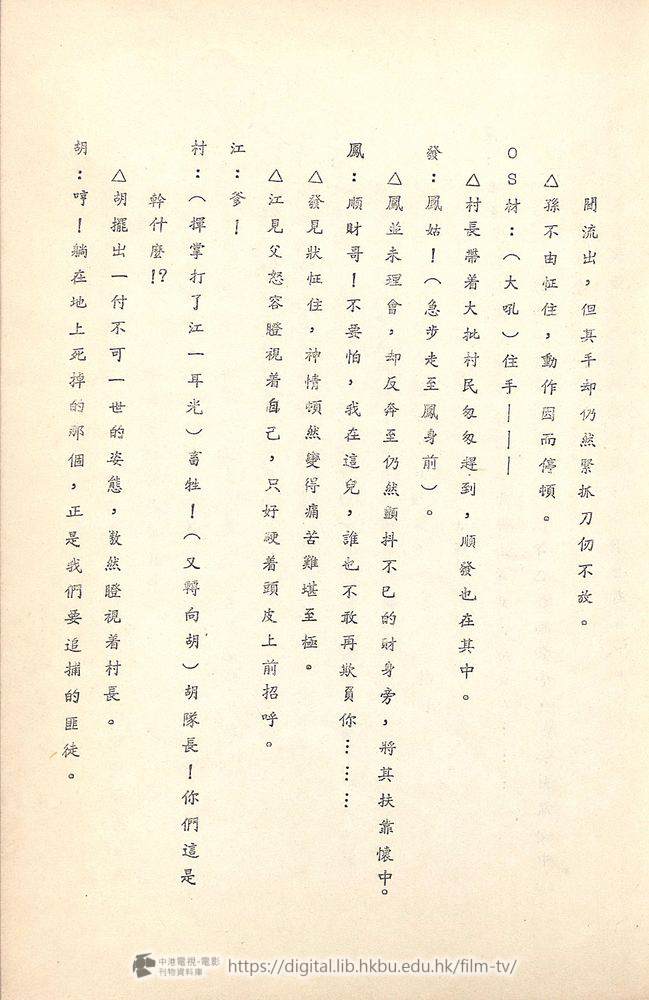 間流出，但其手却仍然緊抓刀仞不放。
△孫不由怔住，動作因而停頓。
ＯＳ材：（大吼）住手———
△村長帶着大批村民匆匆趕到，順發也在其中。
發：鳳姑！（急步走至鳳身前）。
△鳳並未理會，却反奔至仍然顫抖不已的財身旁，將其扶靠懷中。
鳳：順財哥！不要怕，我在這兒，誰也不敢再欺負你………
△發見狀怔住，神情頓然變得痛苦難堪至極。
△江見父怒容瞪視着自己，只好硬着頭皮上前招呼。
江：爹！
村：（揮掌打了江一耳光）畜牲！（又轉向胡）胡隊長！你們這是
幹什麼！？
△胡擺出一付不可一世的姿態，傲然瞪視着村長。
胡：哼！躺在地上死掉的那個，正是我們要追捕的匪徒。
中港電視・電影
刊物資料庫
https://digital.lib.hkbu.edu.hk/film-tv/